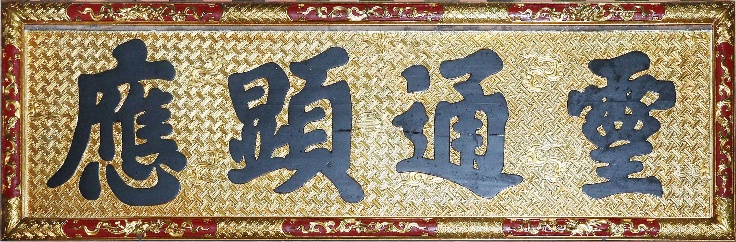 靈通顯應